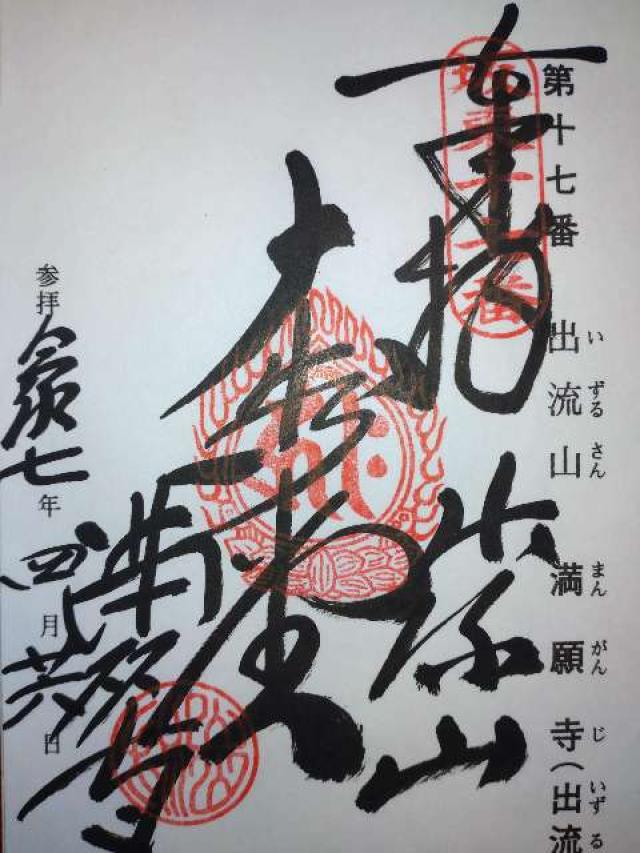 第十七番 出流山 満願寺(出流
いずるさん まんがんじ いずる
坂東十七番
奉拝 出流山
満願寺
参拝 令和七年 四月 日